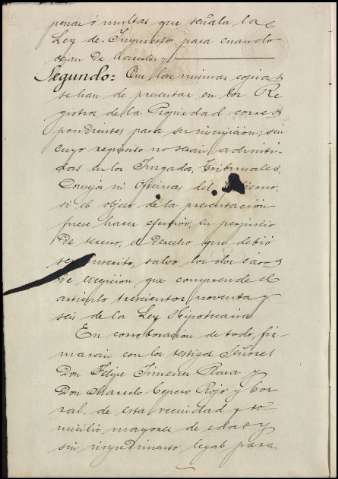 penas ó multas que señala la
Ley de Impuesto para cuando
dejan de hacerlo.
Segundo: Que las mismas copias
se han de presentar en los Re
gistros de la Propiedad corres
pondientes para su inscripción; sin
cuyo requisito no serán admiti
das en los Juzgados, Tribunales,
Consejos ni Oficinas del
si el objeto de la presentación
fuere hacer efectivo, en perjuicio
de tercero, el derecho que debió
ser inscrito, salvo los dos ca
de excepción que comprende el
artículo trescientos noventa y
seis de la Ley Hipotecaria
En corroboración de todo, fir
marán con los testigos Señores
Don Felipe Jimenez Rana y
Don Marcelo Rojo y Cor
ral de esta vecindad y do
micilio mayores de edad y
sin impedimento legal para